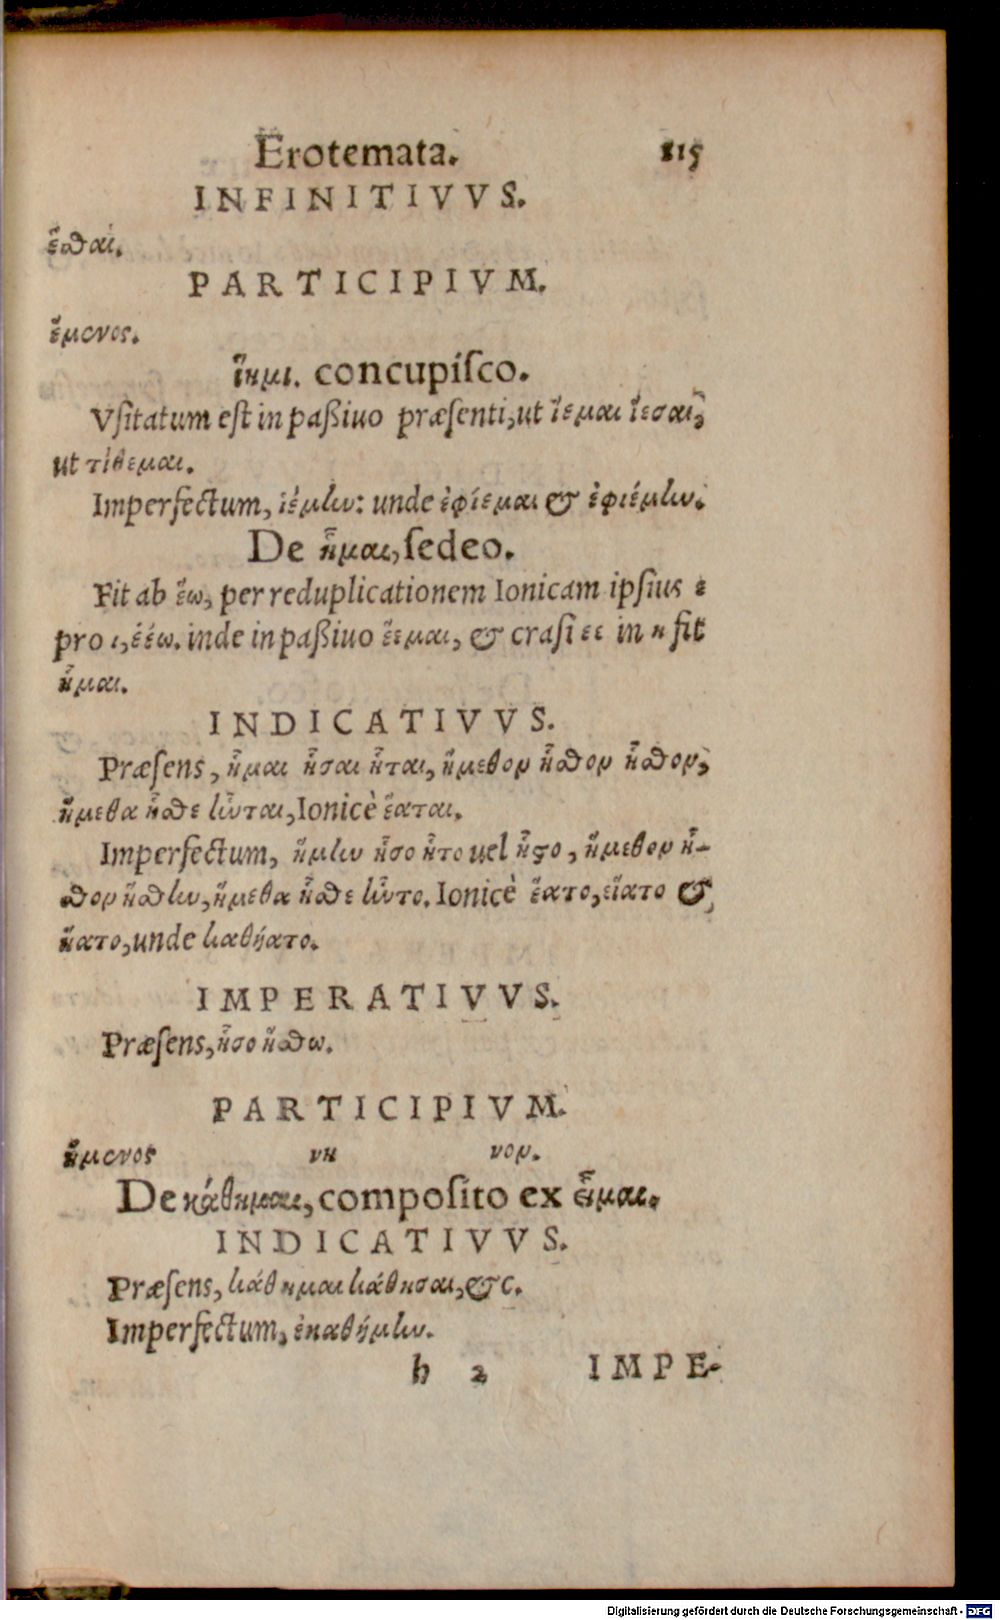 Erotemata. 115
INFINITIVVS.
ἕσθαι.
PARTICIPIVM.
ἕμενος.
ἵημι. concupiſco.
Vſitatum eſt in paßiuo præſenti, ut ἵεμαι ἵεσαι,
ut τίθεμαι.
Imperfectum, ἱέμην: unde ἐφίεμαι & ἐφιέμην.
De ἧμαι, ſedeo.
Fit ab ἕω, per reduplicationem Ionicam ipſius ε
pro ι, ἑέω. inde in paßiuo ἕεμαι, & craſi εε in η fit
ἧμαι.
INDICATIVVS.
Præſens, ἧμαι ἧσαι ἧται, ἥμεθον ἧσθον ἧσθον,
ἥμεθα ἧσθε ἧνται, Ionicè ἕαται.
Imperfectum, ἥμην ἧσο ἧτο uel ἧστο, ἥμεθον ἧ-
σθον ἥσθην, ἥμεθα ἧσθε ἧντο. Ionicè ἕατο, εἵατο &
ἥατο, unde καθήατο.
IMPERATIVVS.
Præſens, ἧσο ἥσθω.
PARTICIPIVM.
ἥμενος νη νον.
De κάθημαι, compoſito ex ἧμαι.
INDICATIVVS.
Præſens, κάθημαι κάθησαι, &c.
Imperfectum, ἐκαθήμην.
h 2 IMPE-
Digitalisierung gefördert durch die Deutsche Forschungsgemeinschaft - DFG